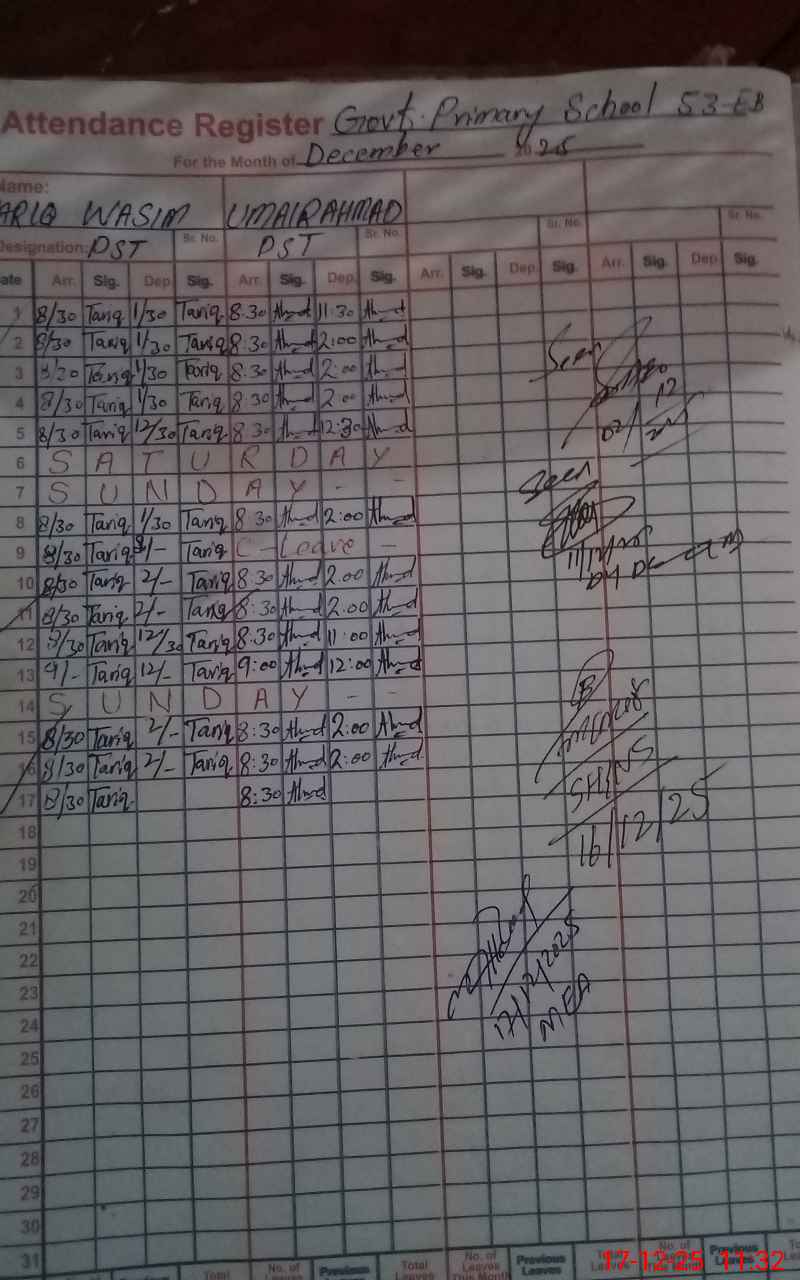 Attendance Register Govt. Primary School 53-EB
For the Month of December 2025
Name:
ARIQ WASIM UMAIR AHMAD
Designation: PST Sr. No. PST Sr. No. Sr. No. Sr. No.
ate Arr. Sig. Dep. Sig. Arr. Sig. Dep. Sig. Arr. Sig. Dep. Sig. Arr. Sig. Dep. Sig.
1 8/30 Tariq 1/30 Tariq 8.30 Ahmd 11:30 Ahmd
2 8/30 Tariq 1/30 Tariq 8:30 Ahmd 2:00 Ahmd
3 8/30 Tariq 1/30 Tariq 8:30 Ahmd 2:00 Ahmd
4 8/30 Tariq 1/30 Tariq 8:30 Ahmd 2:00 Ahmd
5 8/30 Tariq 12/30 Tariq 8:30 Ahmd 12:30 Ahmd
6 SATURDAY
7 SUNDAY - -
8 8/30 Tariq 1/30 Tariq 8:30 Ahmd 2:00 Ahmd
9 8/30 Tariq 2/- Tariq C-Leave -
10 8/30 Tariq 2/- Tariq 8:30 Ahmd 2.00 Ahmd
11 8/30 Tariq 2/- Tariq 8:30 Ahmd 2.00 Ahmd
12 8/30 Tariq 12/30 Tariq 8:30 Ahmd 11:00 Ahmd
13 9/- Tariq 12/- Tariq 9:00 Ahmd 12:00 Ahmd
14 SUNDAY - -
15 8/30 Tariq 2/- Tariq 8:30 Ahmd 2:00 Ahmd
16 8/30 Tariq 2/- Tariq 8:30 Ahmd 2:00 Ahmd
17 8/30 Tariq 8:30 Ahmd
18
19
20
21
22
23
24
25
26
27
28
29
30
31
Seen
02/12
Seen
11/12/25
16/12/25
17/12/2025
MEA
Total No. of Leaves Previous Leaves Total Leaves No. of Leaves This Month Previous Leaves Total Leaves No. of Leaves Previous Leaves
17-12-25 11:32